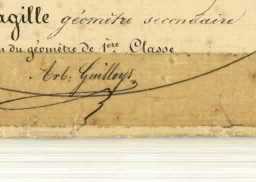 agille géomètre secondaire
n du géomètre de 1ère Classe
Arb: Guilloys